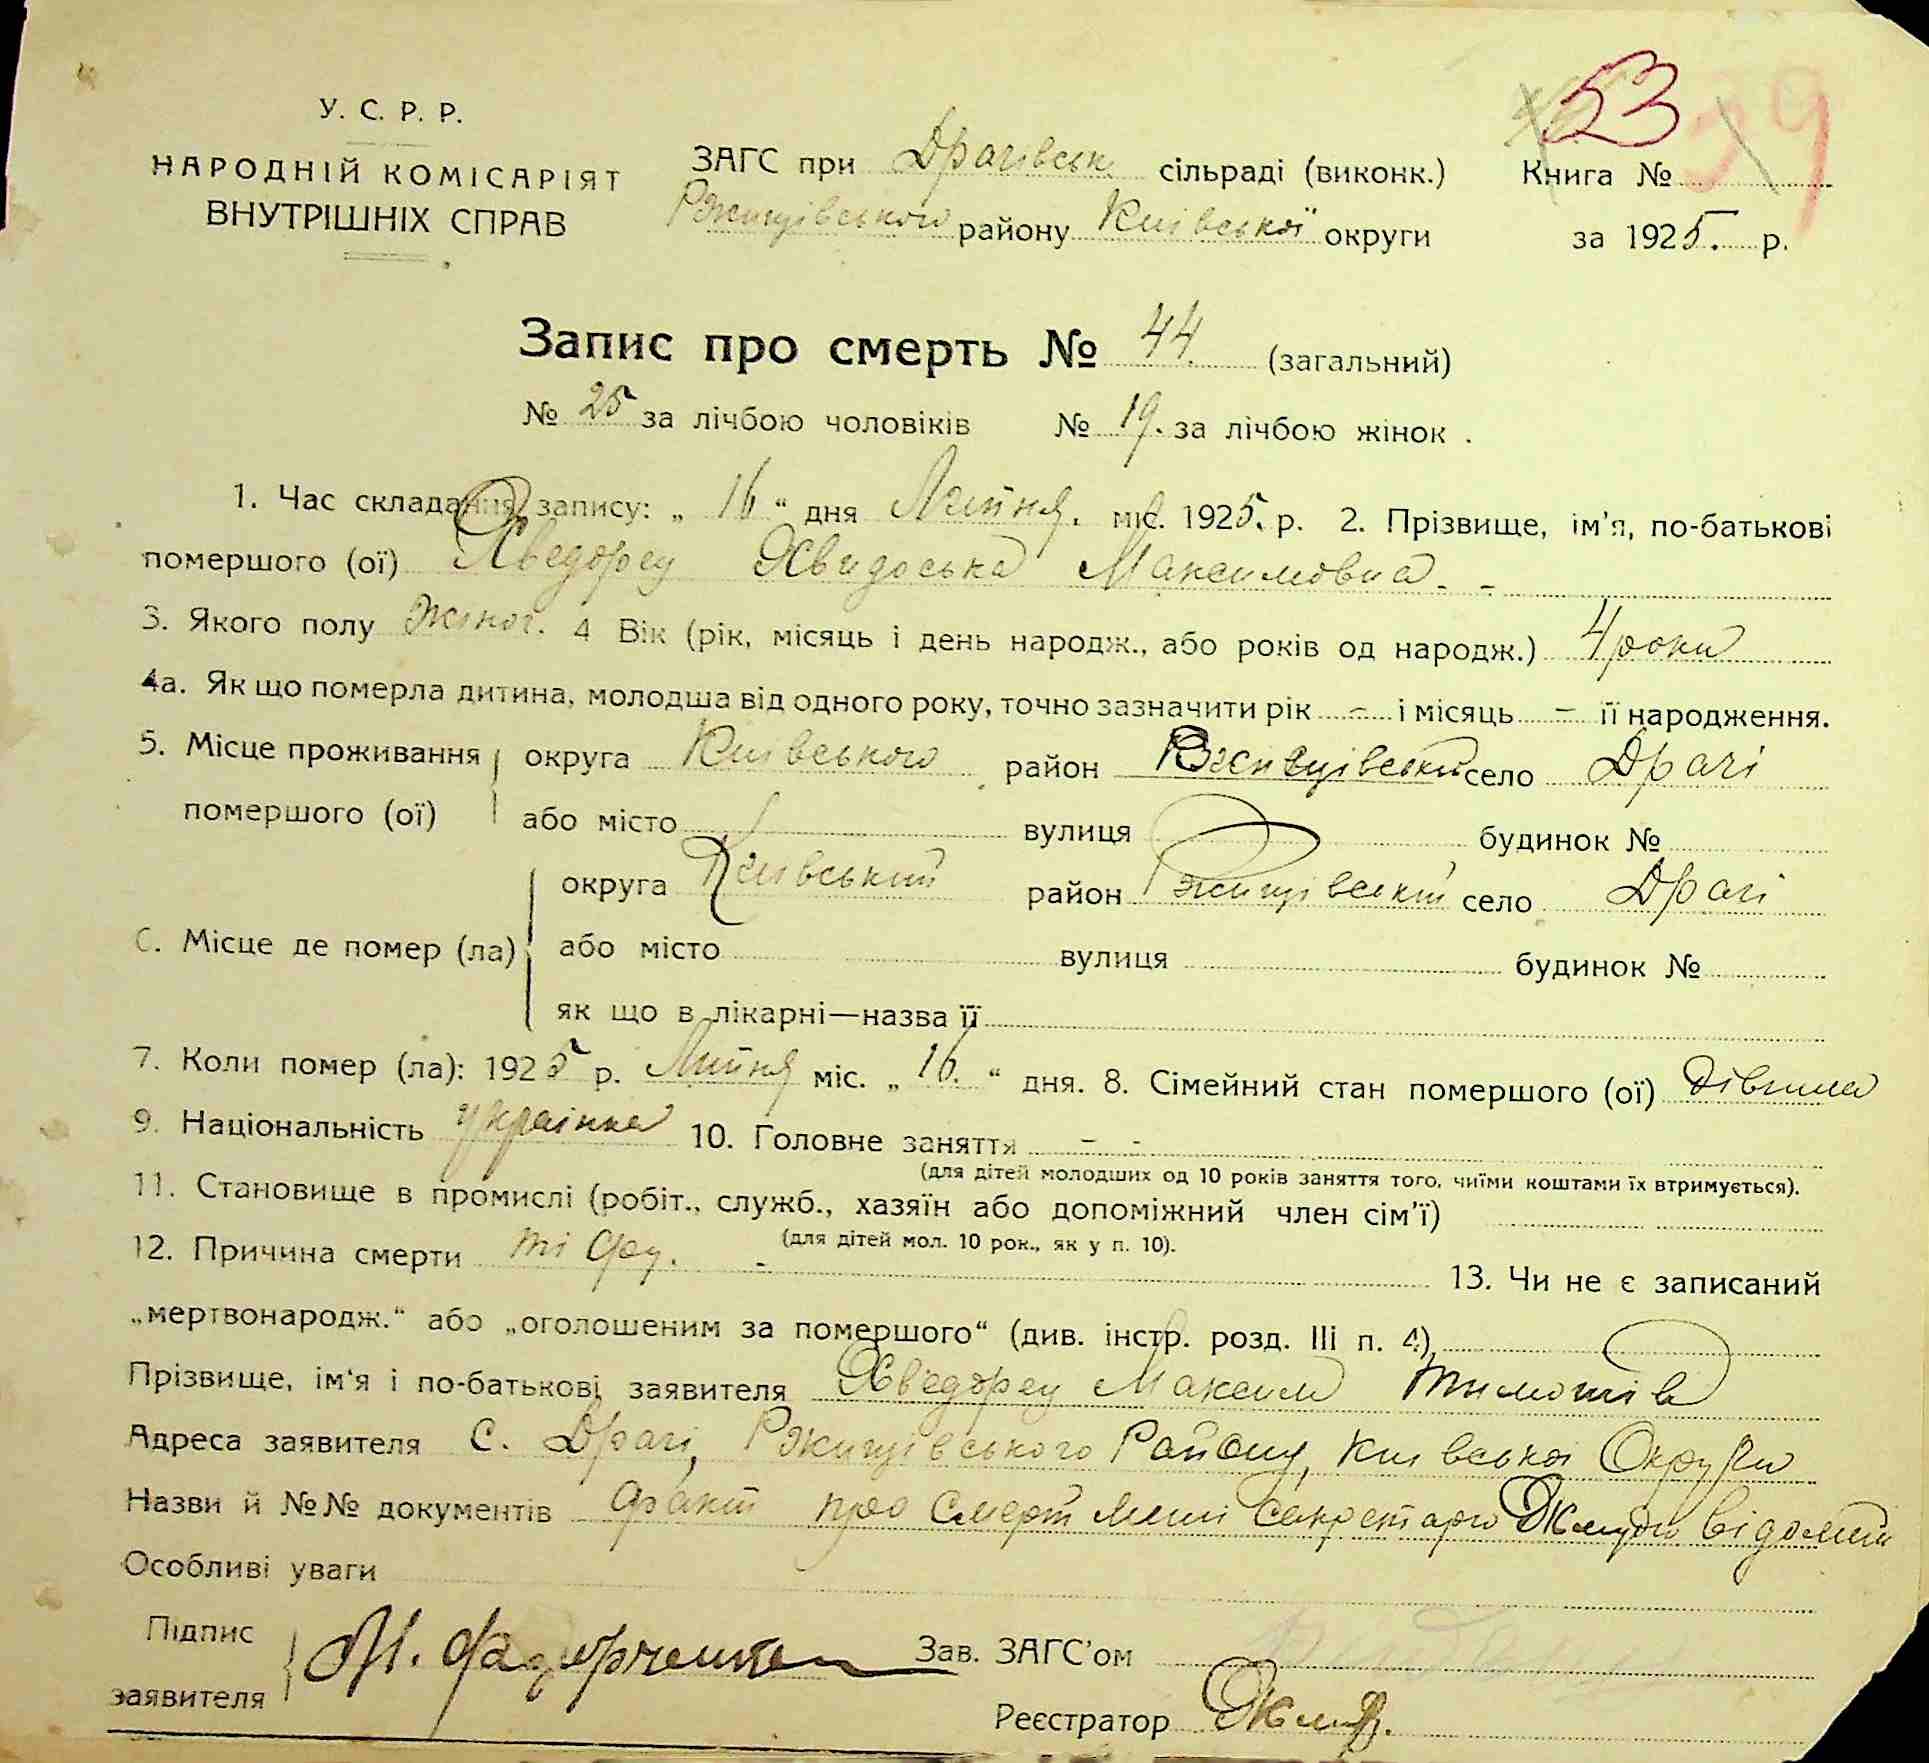 53 39
У. С. Р. Р.
НАРОДНІЙ КОМІСАРІЯТ
ВНУТРІШНІХ СПРАВ
ЗАГС при Драчівськ. сільраді (виконк.) Книга №
Ржищівського району Київської округи за 1925. р.
Запис про смерть № 44. (загальний)
№ 25 за лічбою чоловіків № 19. за лічбою жінок .
1. Час складання запису: „ 16 “ дня Липня. міс. 1925. р. 2. Прізвище, ім'я, по-батькові
помершого (ої) Хведорец Хвидоська Максимовна. -
3. Якого полу Жіноч. 4 Вік (рік, місяць і день народж., або років од народж.) 4 роки
4а. Як що померла дитина, молодша від одного року, точно зазначити рік - і місяць - її народження.
5. Місце проживання округа Київського район Ржищівський село Драчі
помершого (ої) або місто вулиця будинок №
округа Київський район Ржищівский село Драчі
6. Місце де помер (ла) або місто вулиця будинок №
як що в лікарні—назва її
7. Коли помер (ла): 1925 р. Липня міс. „ 16. “ дня. 8. Сімейний стан помершого (ої) дівчина
9. Національність українка 10. Головне заняття - -
(для дітей молодших од 10 років заняття того, чиїми коштами їх втримується).
11. Становище в промислі (робіт., служб., хазяїн або допоміжний член сім'ї)
(для дітей мол. 10 рок., як у п. 10).
12. Причина смерти - 13. Чи не є записаний
„мертвонародж.“ або „оголошеним за помершого“ (див. інстр. розд. III п. 4)
Прізвище, ім'я і по-батькові заявителя Хведорец Максим Тимотів
Адреса заявителя С. Драчі, Ржищівського Району, Київської Округи
Назви й №№ документів факт про смерт мині секретарю відомий
Особливі уваги
Підпис
заявителя М. Фадорченко Зав. ЗАГС'ом
Реєстратор